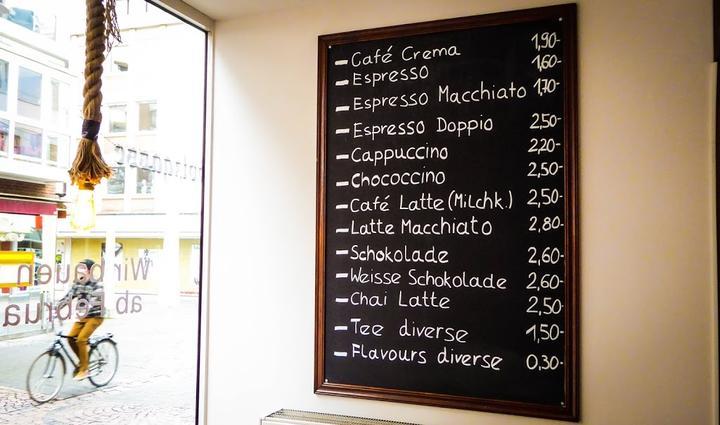 Café Crema 1,90-
Espresso 1,60-
Espresso Macchiato 1,70-
Espresso Doppio 2,50-
Cappuccino 2,20-
Chococcino 2,50-
Café Latte (Milchk.) 2,50-
Latte Macchiato 2,80-
Schokolade 2,60-
Weisse Schokolade 2,60-
Chai Latte 2,50-
Tee diverse 1,50-
Flavours diverse 0,30-
Wir bauen
ab Februa